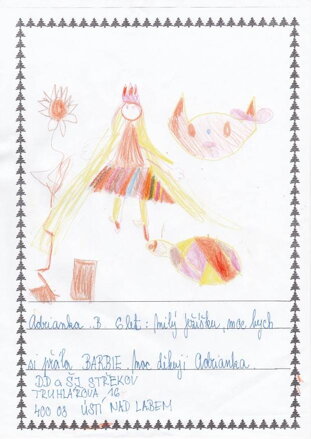 Adrianka B 6 let: milý Ježíšku, moc bych
si přála BARBIE. moc děkuji Adrianka.
DD a ŠJ STŘEKOV
TRUHLÁŘOVA 16
400 03 ÚSTÍ NAD LABEM